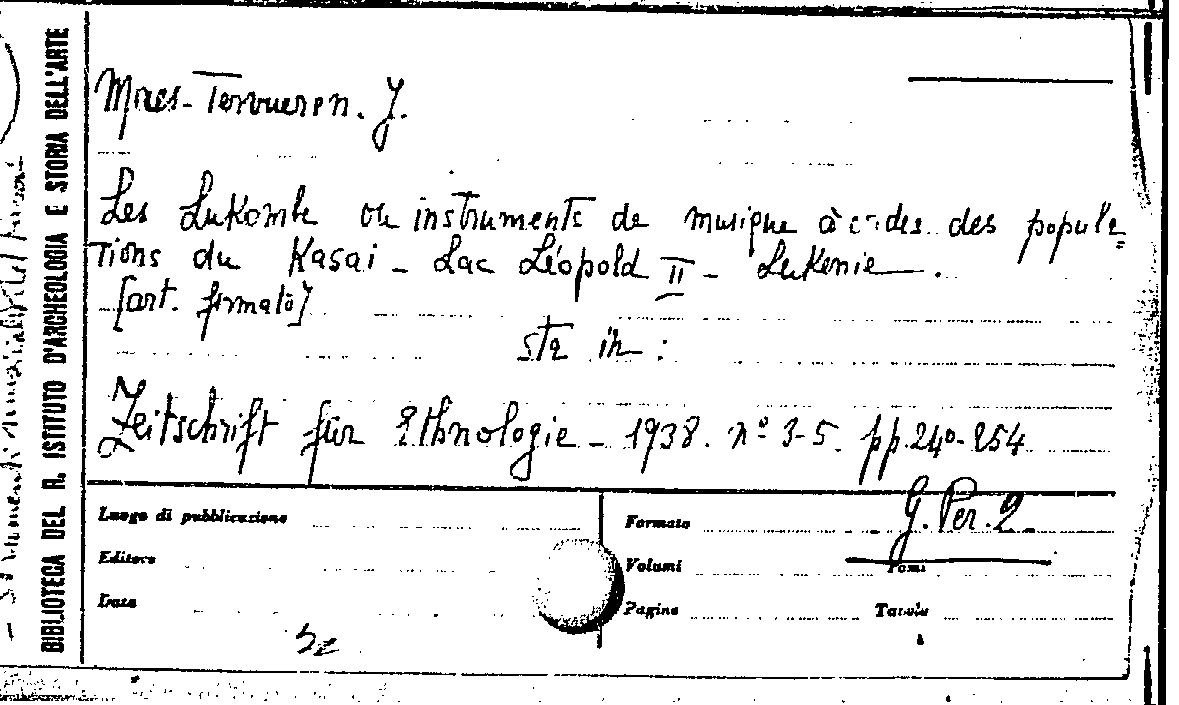 BIBLIOTECA DEL R. ISTITUTO D'ARCHEOLOGIA E STORIA DELL'ARTE
Maes-Tervueren. J.
Les Lukombe ou instruments de musique à cordes des popula=
tions du Kasai - Lac Léopold II - Lukenie.
[art. firmato]
sta in:
Zeitschrift für Ethnologie - 1938. nº 3-5. pp. 240-254
G. Per. 2
Luogo di pubblicazione
Formato
Editore
Volumi
Tomi
Data
Pagine
Tavole